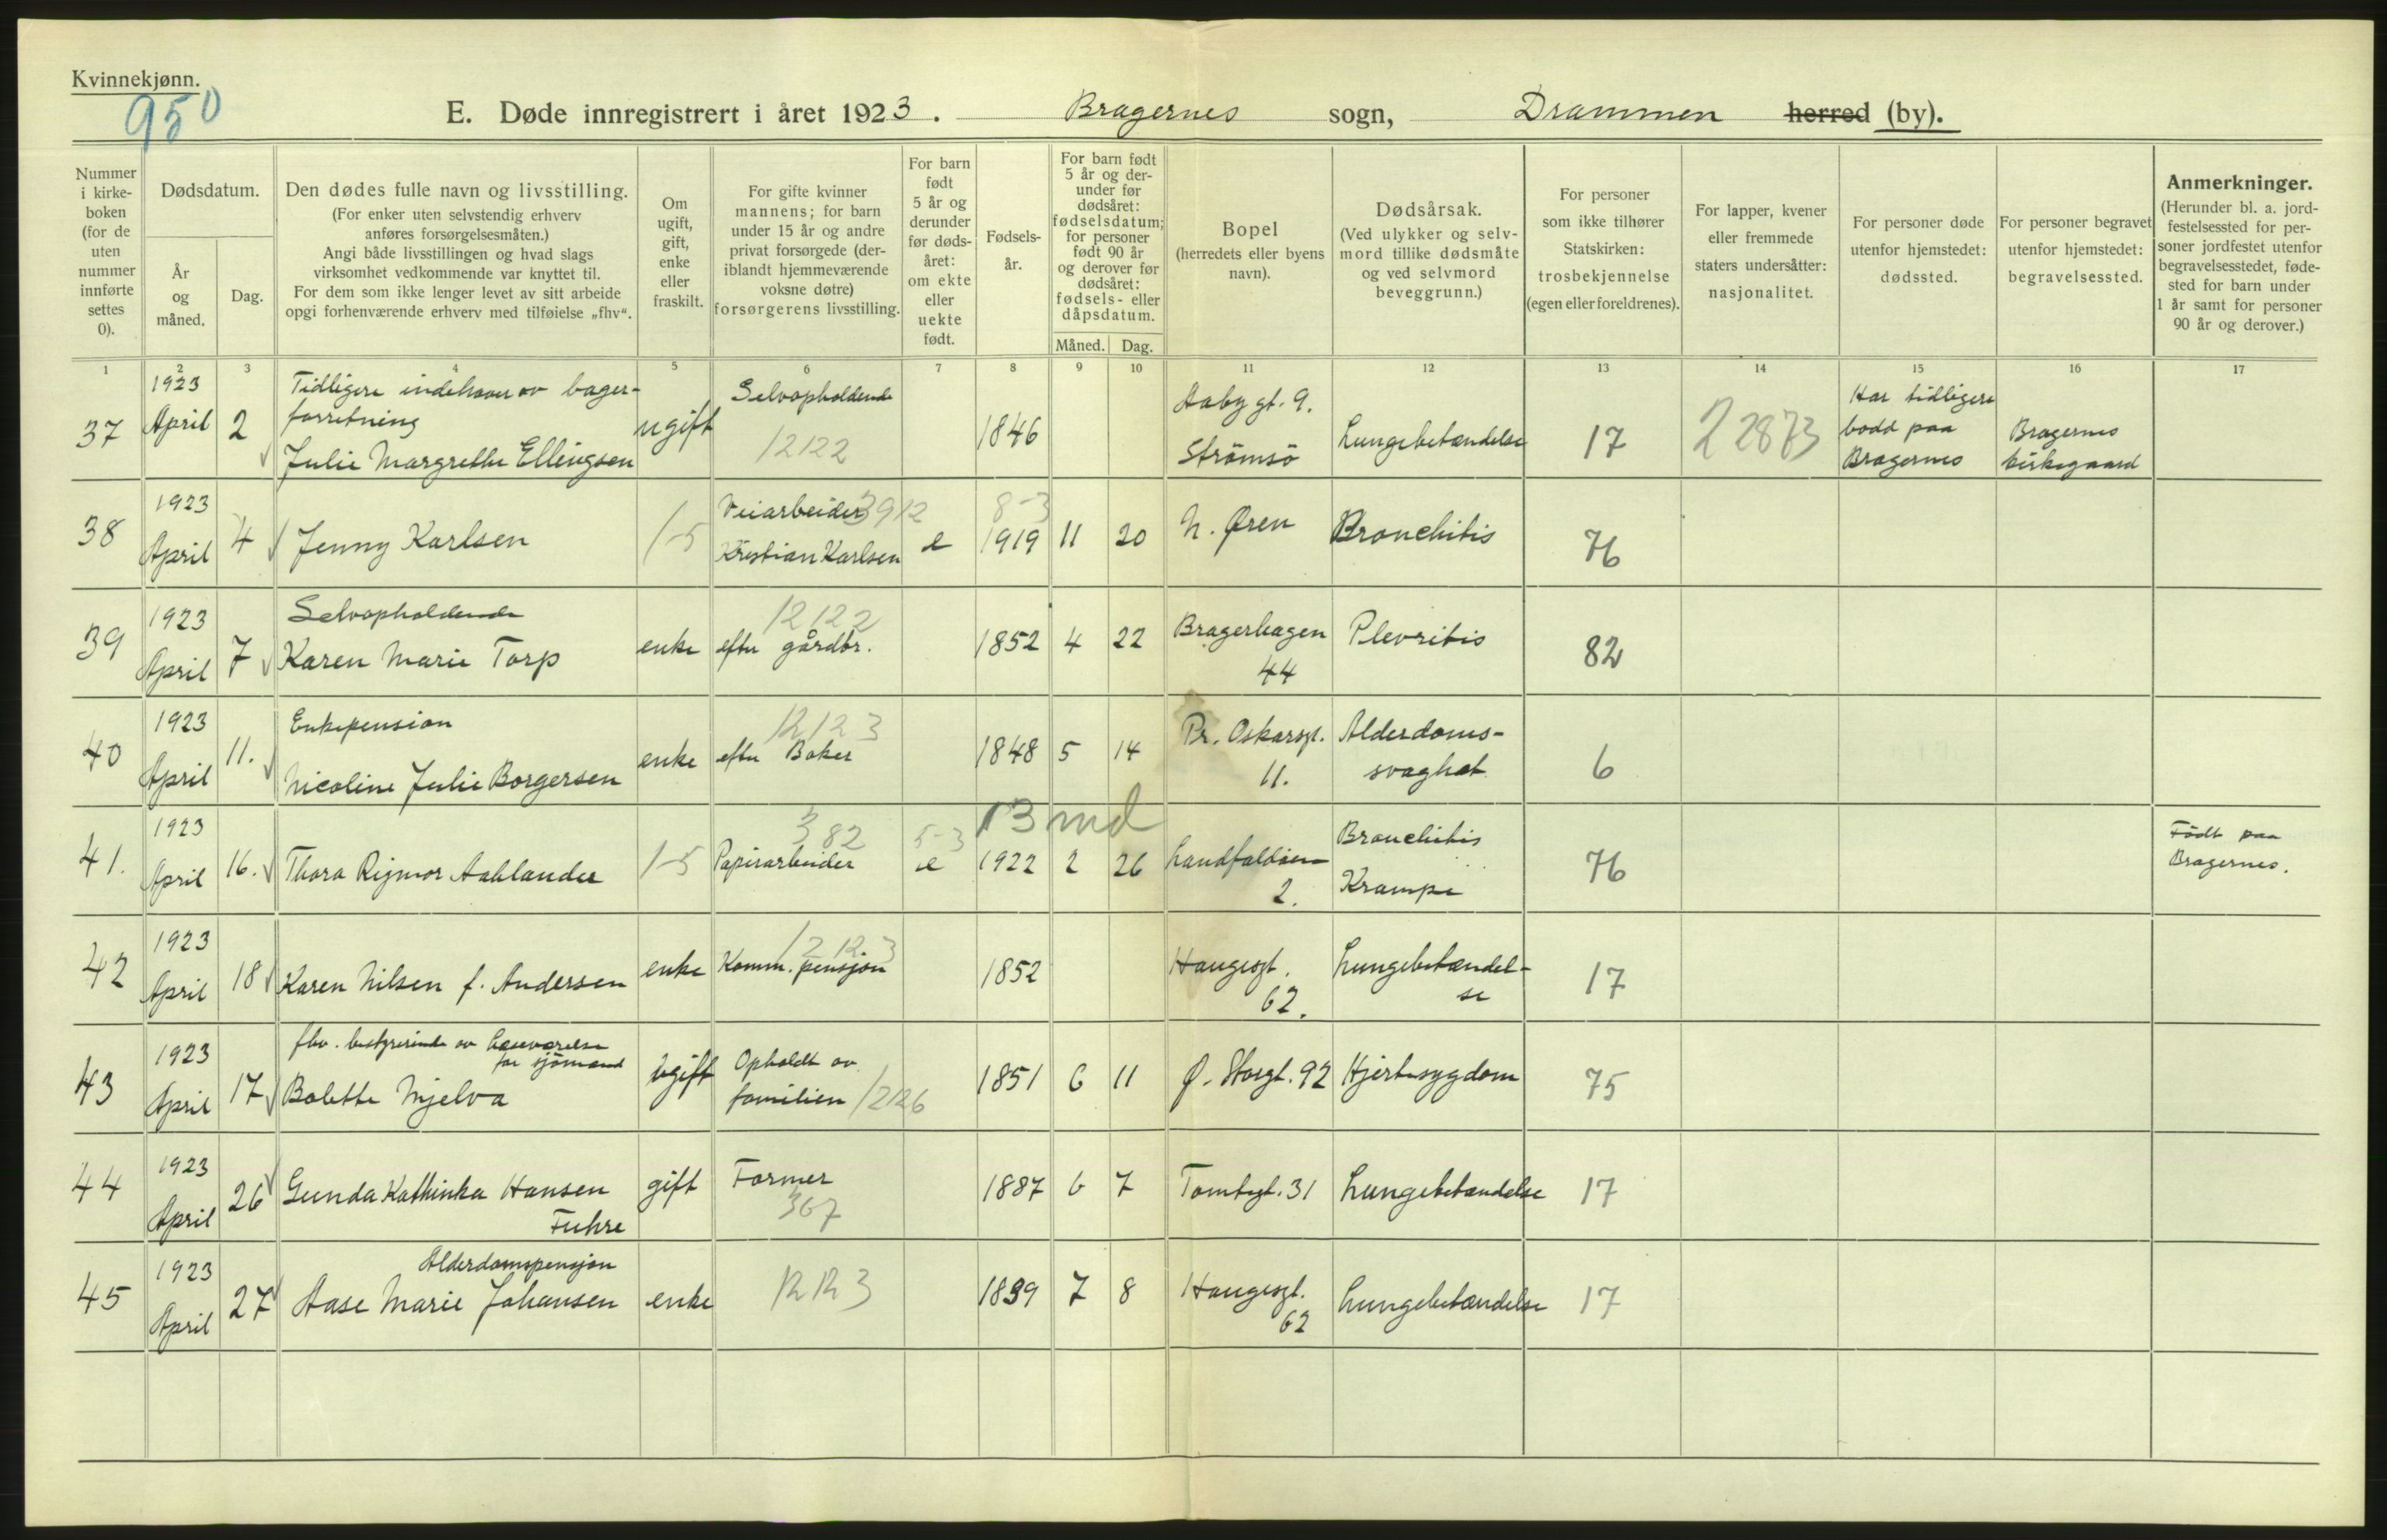 Kvinnekjønn.
950
E. Døde innregistrert i året 1923. Bragernes sogn, Drammen herred (by).
Nummer i kirke-boken (for de uten nummer innførte settes 0).
Dødsdatum.
År og måned.
Dag.
Den dødes fulle navn og livsstilling.
(For enker uten selvstendig erhverv
anføres forsørgelsesmåten.)
Angi både livsstillingen og hvad slags
virksomhet vedkommende var knyttet til.
For dem som ikke lenger levet av sitt arbeide
opgi forhenværende erhverv med tilføielse „fhv“.
Om ugift, gift, enke eller fraskilt.
For gifte kvinner
mannens; for barn
under 15 år og andre
privat forsørgede (der-
iblandt hjemmeværende
voksne døtre)
forsørgerens livsstilling.
For barn født 5 år og derunder før døds-året: om ekte eller uekte født.
Fødsels-år.
For barn født
5 år og der-
under før
dødsåret:
fødselsdatum;
for personer
født 90 år
og derover før
dødsåret:
fødsels- eller
dåpsdatum.
Måned. Dag.
Bopel
(herredets eller byens
navn).
Dødsårsak.
(Ved ulykker og selv-
mord tillike dødsmåte
og ved selvmord
beveggrunn.)
For personer
som ikke tilhører
Statskirken:
trosbekjennelse
(egen eller foreldrenes).
For lapper, kvener
eller fremmede
staters undersåtter:
nasjonalitet.
For personer døde
utenfor hjemstedet:
dødssted.
For personer begravet
utenfor hjemstedet:
begravelsessted.
Anmerkninger.
(Herunder bl. a. jord-
festelsessted for per-
soner jordfestet utenfor
begravelsesstedet, føde-
sted for barn under
1 år samt for personer
90 år og derover.)
1 2 3 4 5 6 7 8 9 10 11 12 13 14 15 16 17
37 1923 April 2 Tidligere indehaver av bager-
forretning
Julie Margrethe Ellingsen ugift Selvopholdende 12122 1846 Aaby gt. 9. Strömsö Lungebetændelse 17 22873 Har tidligere bodd paa Bragernes Bragernes kirkegaard
38 1923 April 4 Jenny Karlsen 1-5 Veiarbeider 3912 Kristian Karlsen e 8-3 1919 11 20 N. Øren Bronchitis 76
39 1923 April 7 Selvopholdende
Karen Marie Torp enke efter gårdbr. 12122 1852 4 22 Bragerhagen 44 Plevritis 82
40 1923 April 11. Enkepension
Nicoline Julie Borgersen enke efter Baker 12123 1848 5 14 Pr. Oskarsgt. 11. Alderdoms-
svaghet 6
41. 1923 April 16. Thora Rigmor Aahlander 1-5 382 Papirarbeider 5-3 e 13 md 1922 2 26 Landfaldöen 2. Bronchitis
Krampe 76 Født paa
Bragernes.
42 1923 April 18 Karen Nilsen f. Andersen enke 12123 Komm. pensjon 1852 Haugesgt. 62. Lungebetændel-
se 17
43 1923 April 17 fhv. bestyrerinde av læseværelse
for sjömænd
Bolette Mjelva ugift Opholdt av
familien 12126 1851 6 11 Ø. Storgt. 92 Hjertesygdom 75
44 1923 April 26 Gunda Kathinka Hansen
Fuhre gift Former 367 1887 6 7 Tomtegt. 31 Lungebetændelse 17
45 1923 April 27 Alderdomspensjon
Aase Marie Johansen enke 12123 1839 7 8 Haugesgt. 62 Lungebetændelse 17